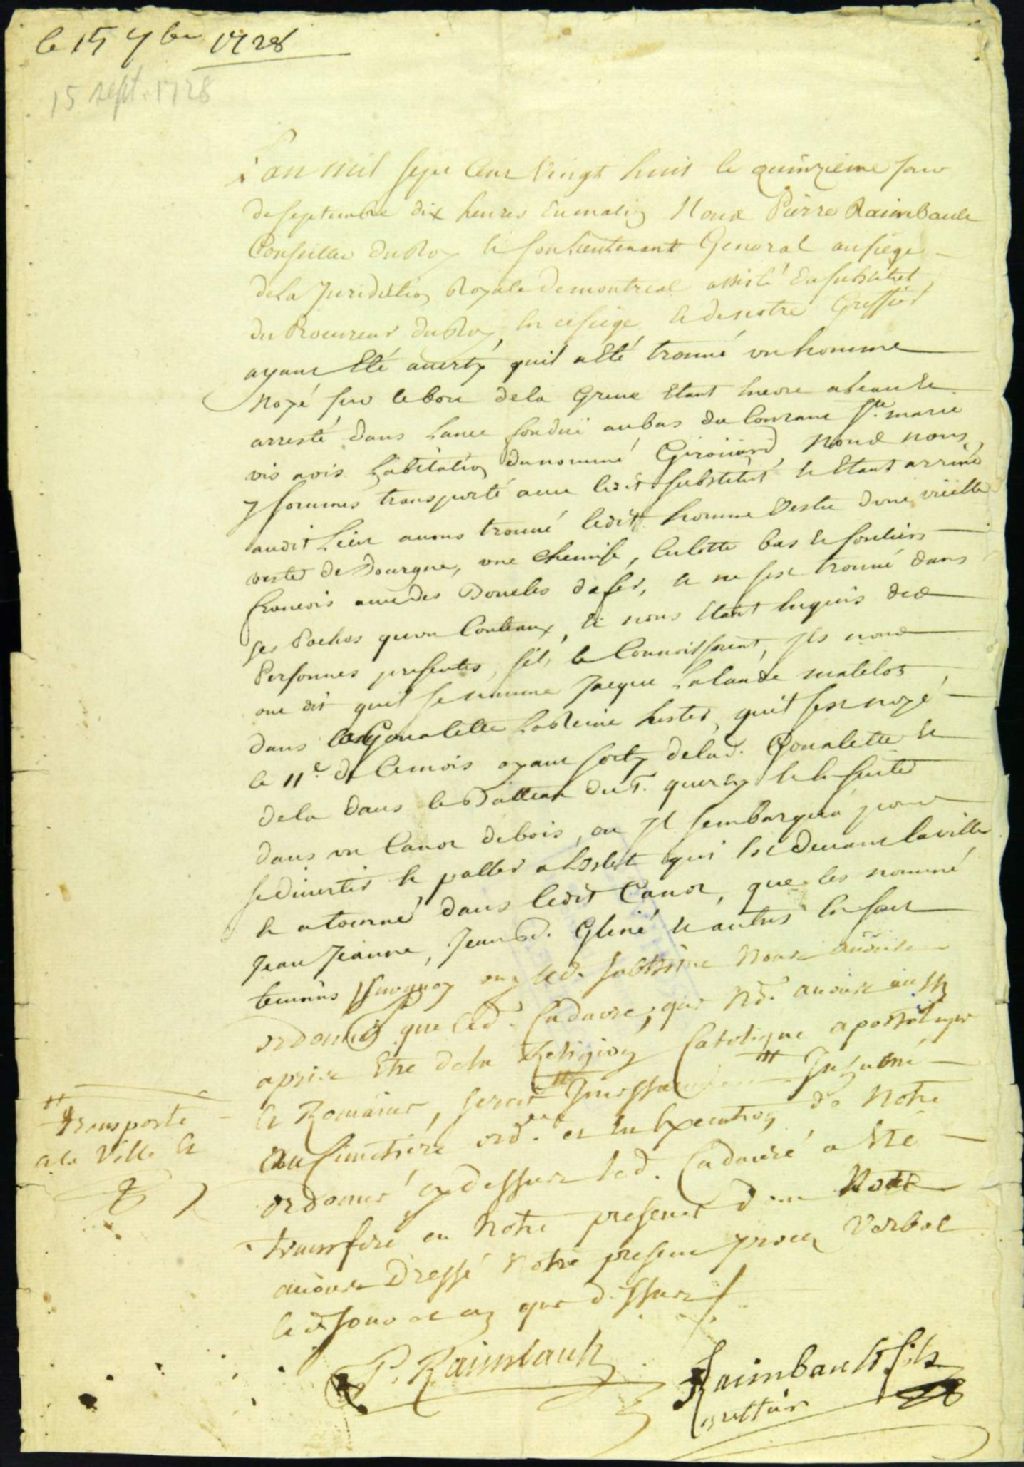 le 15 7bre 1728
15 sept. 1728
L'an mil sept cent vingt huit le quinzieme jour
de septembre dix heures du matin Nous Pierre Raimbault
Conseiller du Roy et son lieutenant General au siege
de la Juridiction Royale de montreal assisté du substitut
du Procureur du Roy en ce siege et de nostre Greffier
ayant Eté averty quil a Eté trouvé un homme
noyé sur le bord de la Greve Etant encore a l'eau et
arresté dans l'ance au bas du Courant Ste marie
vis avis l'abitation du nommé Giroüard, Nous nous
y sommes transporté avec ledit substitut et Etant arrivé
audit Lieu avons trouvé ledit homme vestu d'une vieille
veste de une chemise, culotte bas et souliers
francois avec des Boucles de fer, et ne s'est trouvé dans
ses Poches qu'un Couteau, et nous Etant enquis des
Personnes presentes, s'ils le Connoissoient, ils nous
ont dit quil se nomme Jacque Lalande matelot
dans la Goualette quil s'est noyé
le 11e. de Ce mois ayant sorty de lad. Goualette et
de la dans le Batteau du S. et en suitte
dans un Canot de bois, ou il s'embarqua pour
se divertir et passer a l'Islet qui Est Devant la ville
et a tourné dans ledit Canot, que les nommé
Jean Jeanne, Jean Gliné et autres en sont
temoins surquoy ouy led. substitut Nous avons
ordonné que led. Cadavre, que Nd. avons aussy
apris Etre de la Religion Catolique apostolique
et Romaine, seroit Incessament # Inhumé
au Cimetiere ord.re et en Execution de Notre
ordonnée cy dessus led. Cadavre a Eté
transferé en Notre presence dont Nous
avons Dressé Notre present procez verbal
led. jour et an que dessus
# transporté
a la Ville et
P. Raimbault
Raimbault fils
greffier